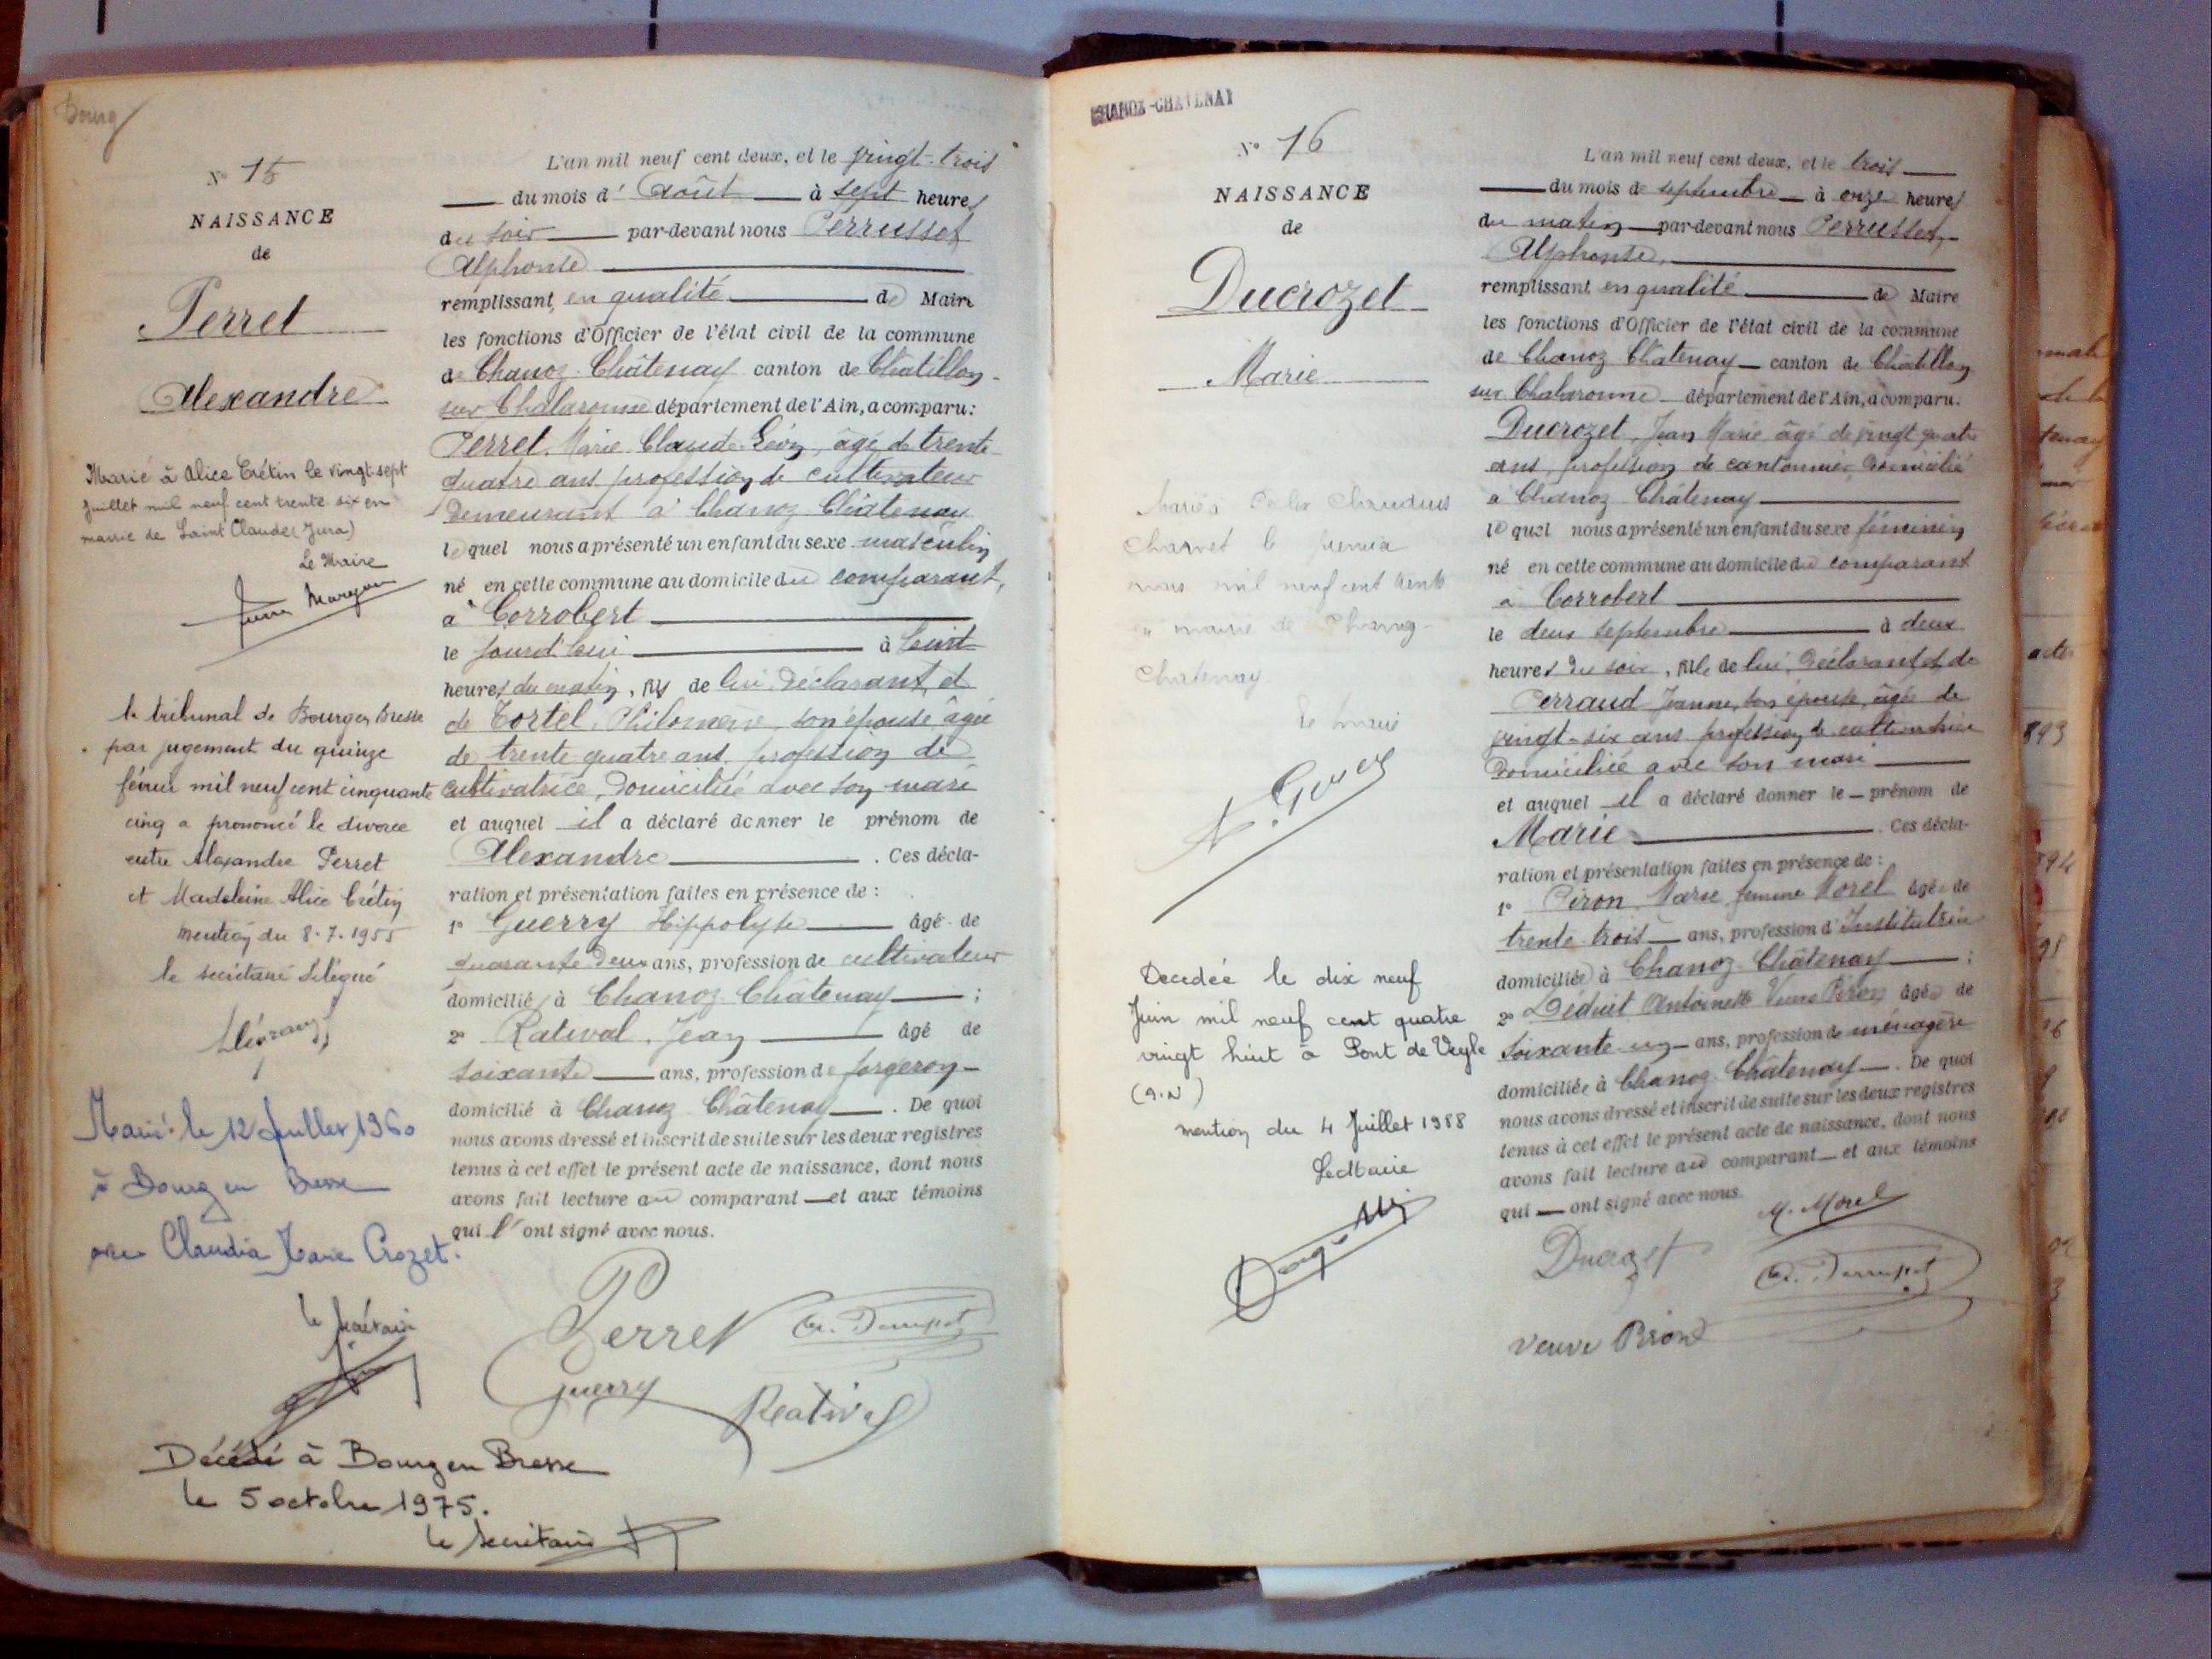 Bourg
N° 15
NAISSANCE
de
Perret
Alexandre
Marié à Alice Crétin le vingt-sept
juillet mil neuf cent trente six en
mairie de Saint Claude (Jura)
Le Maire
le tribunal de Bourg en Bresse
par jugement du quinze
février mil neuf cent cinquante
cinq a prononcé le divorce
entre Alexandre Perret
et Madeleine Alice Crétin
mention du 8.7.1955
le secrétaire délégué
Marié le 12 Juillet 1960
à Bourg en Bresse
avec Claudia Marie Crozet.
le secrétaire
Décédé à Bourg en Bresse
le 5 octobre 1975.
le secrétaire
L'an mil neuf cent deux, et le vingt-trois
du mois d' Août à sept heures
du soir par-devant nous Perrusset
Alphonse
remplissant, en qualité de Maire
les fonctions d'Officier de l'état civil de la commune
de Chanoz-Châtenay canton de Châtillon-
sur Chalaronne département de l'Ain, a comparu:
Perret, Marie Claude Léon, âgé de trente-
quatre ans profession de cultivateur
demeurant à Chanoz Châtenay
lequel nous a présenté un enfant du sexe masculin
né en cette commune au domicile du comparant,
à Corrobert
le jourd'hui à huit
heures du matin, fils de lui, déclarant, et
de Tortel, Philomène, son épouse âgée
de trente quatre ans, profession de
cultivatrice, domiciliée avec son mari
et auquel il a déclaré donner le prénom de
Alexandre . Ces décla-
ration et présentation faites en présence de :
1° Guerry Hippolyte âgé de
quarante deux ans, profession de cultivateur
domicilié à Chanoz-Châtenay ;
2° Ratival, Jean âgé de
soixante ans, profession de forgeron
domicilié à Chanoz Châtenay . De quoi
nous avons dressé et inscrit de suite sur les deux registres
tenus à cet effet le présent acte de naissance, dont nous
avons fait lecture au comparant et aux témoins
qui l'ont signé avec nous.
Perret
Guerry
Ratival
CHANOZ-CHATENAY
N° 16
NAISSANCE
de
Ducrozet
Marie
Mariée à Claudius
Charvet le premier
mars mil neuf cent trente
en mairie de Chanoz-
Chatenay.
le maire
Decedée le dix neuf
Juin mil neuf cent quatre
vingt huit à Pont de Veyle
mention du 4 Juillet 1988
L'an mil neuf cent deux, et le trois
du mois de septembre à onze heures
du matin par-devant nous Perrusset,
Alphonse,
remplissant en qualité de Maire
les fonctions d'Officier de l'état civil de la commune
de Chanoz Châtenay canton de Châtillon
sur Chalaronne département de l'Ain, a comparu.
Ducrozet, Jean Marie âgé de vingt quatre
ans, profession de cantonnier domicilié
à Chanoz Châtenay
lequel nous a présenté un enfant du sexe féminin
né en cette commune au domicile du comparant
à Corrobert
le deux septembre à deux
heures du soir, fille de lui, déclarant, et de
Perraud Jeanne, son épouse, âgée de
vingt-six ans profession de cultivatrice
domiciliée avec son mari
et auquel il a déclaré donner le prénom de
Marie . Ces décla-
ration et présentation faites en présence de :
1° Piron Marie femme Morel âgée de
trente-trois ans, profession d'Institutrice
domiciliée à Chanoz-Châtenay ;
2° Déduit Antoinette Veuve Brion âgée de
soixante-un ans, profession de ménagère
domiciliée à Chanoz-Châtenay . De quoi
nous avons dressé et inscrit de suite sur les deux registres
tenus à cet effet le présent acte de naissance, dont nous
avons fait lecture au comparant et aux témoins
qui ont signé avec nous.
M. Morel
Ducrozet
Veuve Brion